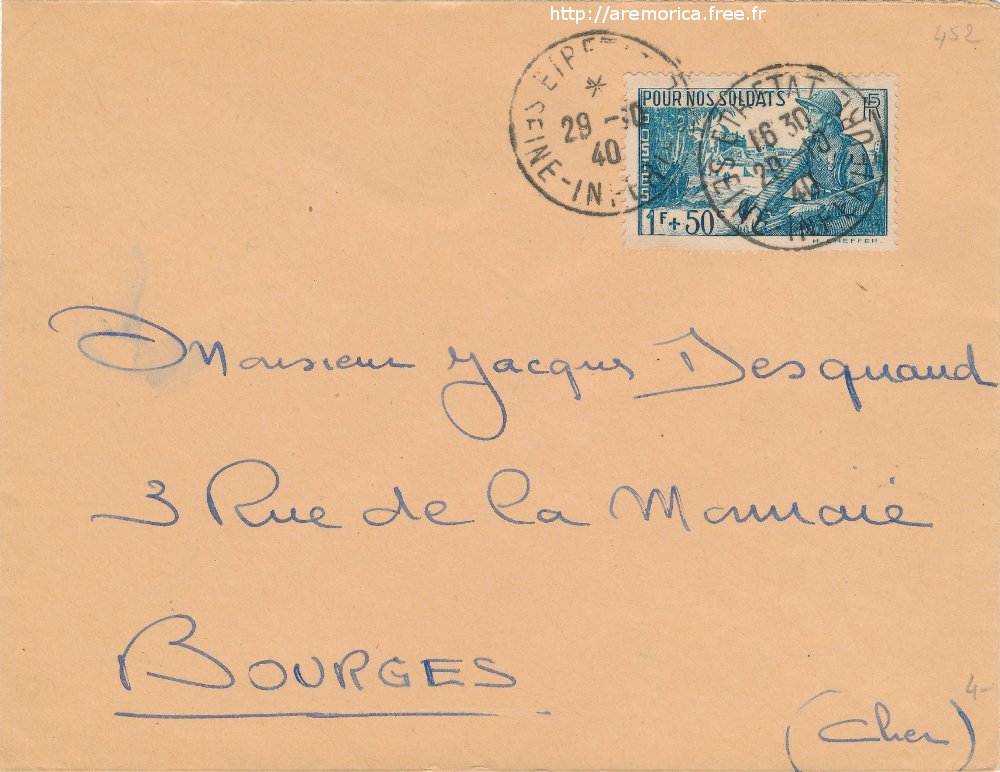 http://aremorica.free.fr
452
ETRETAT
*
29 -10
40
SEINE-INF
POUR NOS SOLDATS
POSTES
1F + 50c
ETRETAT
16 30
29 -10
40
SEINE INFRE
Monsieur Jacques Desquand
3 Rue de la Monnaie
BOURGES
(Cher)
4-